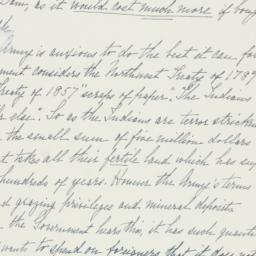 Dam, as it would cost much more if boug
th.
Army is anxious to do the best it can for
ment considers the Northwest Treaty of 1789
Treaty of 1857 "scraps of paper." The Indians
r else". So as the Indians are terror stricken
the small sum of five million dollars
t takes all their fertile land which has sup
hundreds of years. Honor the Army's terms
d grazing privileges and mineral deposits
the Government hears this, it has such quanti
wants to spend on foreigners that it does not